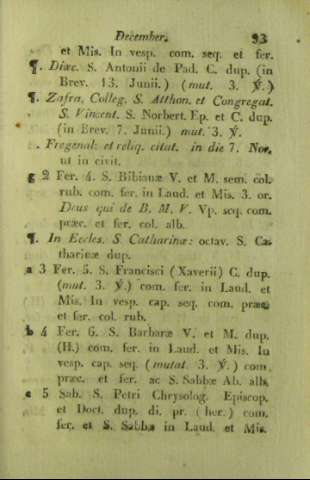 December. 93
et Mis. In vesp. com. seq. et fer.
¶. Diœc. S. Antonii de Pad. C. dup. (in
Brev. 13. Junii.) (mut. 3. ℣.)
¶. Zafra, Colleg. S. Atthon. et Congregat.
S. Vincent. S. Norbert. Ep. et C. dup.
(in Brev. 7. Junii.) mut. 3. ℣.
. Fregenal: et reliq. citat. in die 7. Nov.
ut in civit.
g 2 Fer. 4. S. Bibianæ V. et M. sem. col.
rub. com. fer. in Laud. et Mis. 3. or.
Deus qui de B. M. V. Vp. seq. com.
præc. et fer. col. alb.
¶. In Eccles. S. Catharinæ: octav. S. Ca-
tharinæ dup.
a 3 Fer. 5. S. Francisci (Xaverii) C. dup.
(mut. 3. ℣.) com. fer. in Laud. et
Mis. In vesp. cap. seq. com. præc.
et fer. col. rub.
b 4 Fer. 6. S. Barbaræ V. et M. dup.
(H.) com. fer. in Laud. et Mis. In
vesp. cap. seq. (mutat. 3. ℣.) com.
præc. et fer. ac S. Sabbæ Ab. alb.
c 5 Sab. S. Petri Chrysolog. Episcop.
et Doct. dup. di. pr. (her.) com.
fer. et S. Sabba in Laud. et Mis.